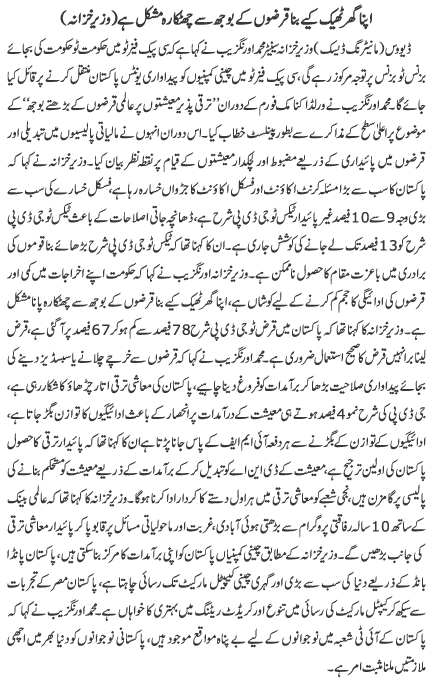 اپنا گھر ٹھیک کیے بنا قرضوں کے بوجھ سے چھٹکارہ مشکل ہے (وزیر خزانہ)
ڈیووس (مانیٹرنگ ڈیسک) وزیر خزانہ سینیٹر محمد اورنگزیب نے کہا ہے کہ سی پیک فیز ٹو میں حکومت ٹو حکومت کی بجائے
بزنس ٹو بزنس پر توجہ مرکوز رہے گی، سی پیک فیز ٹو میں چینی کمپنیوں کو پیداواری یونٹس پاکستان منتقل کرنے پر قائل کیا
جائے گا۔ محمد اورنگزیب نے ورلڈ اکنامک فورم کے دوران ”ترقی پذیر معیشتوں پر عالمی قرضوں کے بڑھتے بوجھ“ کے
موضوع پر اعلیٰ سطح کے مذاکرے سے بطور پینلسٹ خطاب کیا۔ اس دوران انہوں نے مالیاتی پالیسیوں میں تبدیلی اور
قرضوں میں پائیداری کے ذریعے مضبوط اور لچکدار معیشتوں کے قیام پر نقطہ نظر بیان کیا۔ وزیر خزانہ نے کہا کہ
پاکستان کا سب سے بڑا مسئلہ کرنٹ اکاؤنٹ اور فسکل اکاؤنٹ کا جڑواں خسارہ رہا ہے، فسکل خسارے کی سب سے
بڑی وجہ 9 سے 10 فیصد غیر پائیدار ٹیکس ٹو جی ڈی پی شرح ہے، ڈھانچہ جاتی اصلاحات کے باعث ٹیکس ٹو جی ڈی پی
شرح کو 13 فیصد تک لے جانے کی کوشش جاری ہے۔ ان کا کہنا تھا کہ ٹیکس ٹو جی ڈی پی شرح بڑھائے بنا قوموں کی
برادری میں باعزت مقام کا حصول ناممکن ہے۔ اورنگزیب نے کہا کہ حکومت اپنے اخراجات میں کمی اور
قرضوں کی ادائیگی کا حجم کم کرنے کے لیے کوشاں ہے، اپنا گھر ٹھیک کیے بنا قرضوں کے بوجھ سے چھٹکارہ پانا مشکل
ہے۔ وزیر خزانہ کا کہنا تھا کہ پاکستان میں قرض ٹو جی ڈی پی شرح 78 فیصد سے کم ہو کر 67 فیصد پر آ گئی ہے، قرض
لینا برا نہیں قرض کا صحیح استعمال ضروری ہے۔ محمد اورنگزیب نے کہا کہ قرضوں سے خرچے چلانے یا سبسڈیز دینے کی
بجائے پیداواری صلاحیت بڑھا کر برآمدات کو فروغ دینا چاہیے، پاکستان کی معاشی ترقی اتار چڑھاؤ کا شکار رہی ہے،
جی ڈی پی کی شرح نمو 4 فیصد ہوتے ہی معیشت کے درآمدات پر انحصار کے باعث ادائیگیوں کا توازن بگڑ جاتا ہے،
ادائیگیوں کے توازن کے بگڑنے سے ہر دفعہ آئی ایم ایف کے پاس جانا پڑتا ہے۔ ان کا کہنا تھا کہ پائیدار ترقی
پاکستان کی اولین ترجیح ہے، معیشت کے ڈی این اے کو تبدیل کر کے برآمدات کے ذریعے معیشت کو مستحکم بنانے کی
پالیسی پر گامزن ہیں، نجی شعبے کو معاشی ترقی میں ہراول دستے کا کردار ادا کرنا ہوگا۔ وزیر خزانہ کا کہنا تھا کہ عالمی بینک
کے ساتھ 10 سالہ رفاقتی پروگرام سے بڑھتی ہوئی آبادی، غربت اور ماحولیاتی مسائل پر قابو پا کر پائیدار معاشی ترقی
کی جانب بڑھیں گے۔ وزیر خزانہ کے مطابق چینی کمپنیاں پاکستان کو اپنی برآمدات کا مرکز بنا سکتی ہیں، پاکستان پانڈا
بانڈ کے ذریعے دنیا کی سب سے بڑی اور گہری چینی کیپیٹل مارکیٹ تک رسائی چاہتا ہے، پاکستان مصر کے تجربات
سے سیکھ کر کیپٹل مارکیٹ کی رسائی میں تنوع اور کریڈٹ ریٹنگ میں بہتری کا خواہاں ہے۔ محمد اورنگزیب نے کہا کہ
پاکستان کے آئی ٹی شعبہ میں نوجوانوں کے لیے بے پناہ مواقع موجود ہیں، پاکستانی نوجوانوں کو دنیا بھر میں اچھی
ملازمتیں ملنا مثبت امر ہے۔